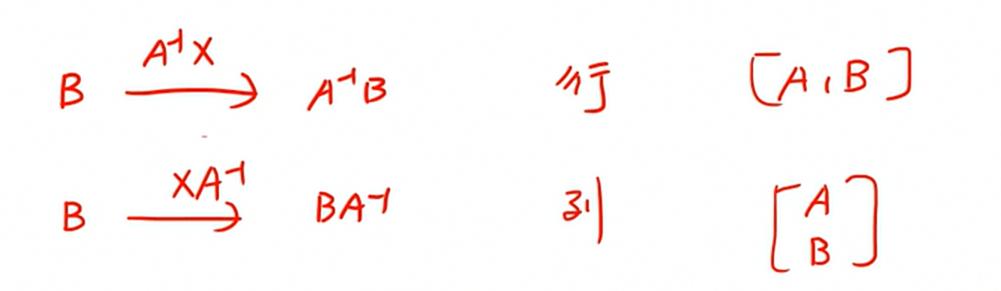 B A⁻¹X → A⁻¹B 行 [A, B]
B XA⁻¹ → BA⁻¹ 列 [A B]